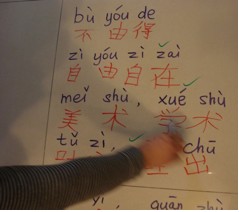 bù yóu de
不由得
zì yóu zì zài
自由自在
meǐ shù, xué shù
美术, 学术
tǔ zì, chū
出
yì quān zhù